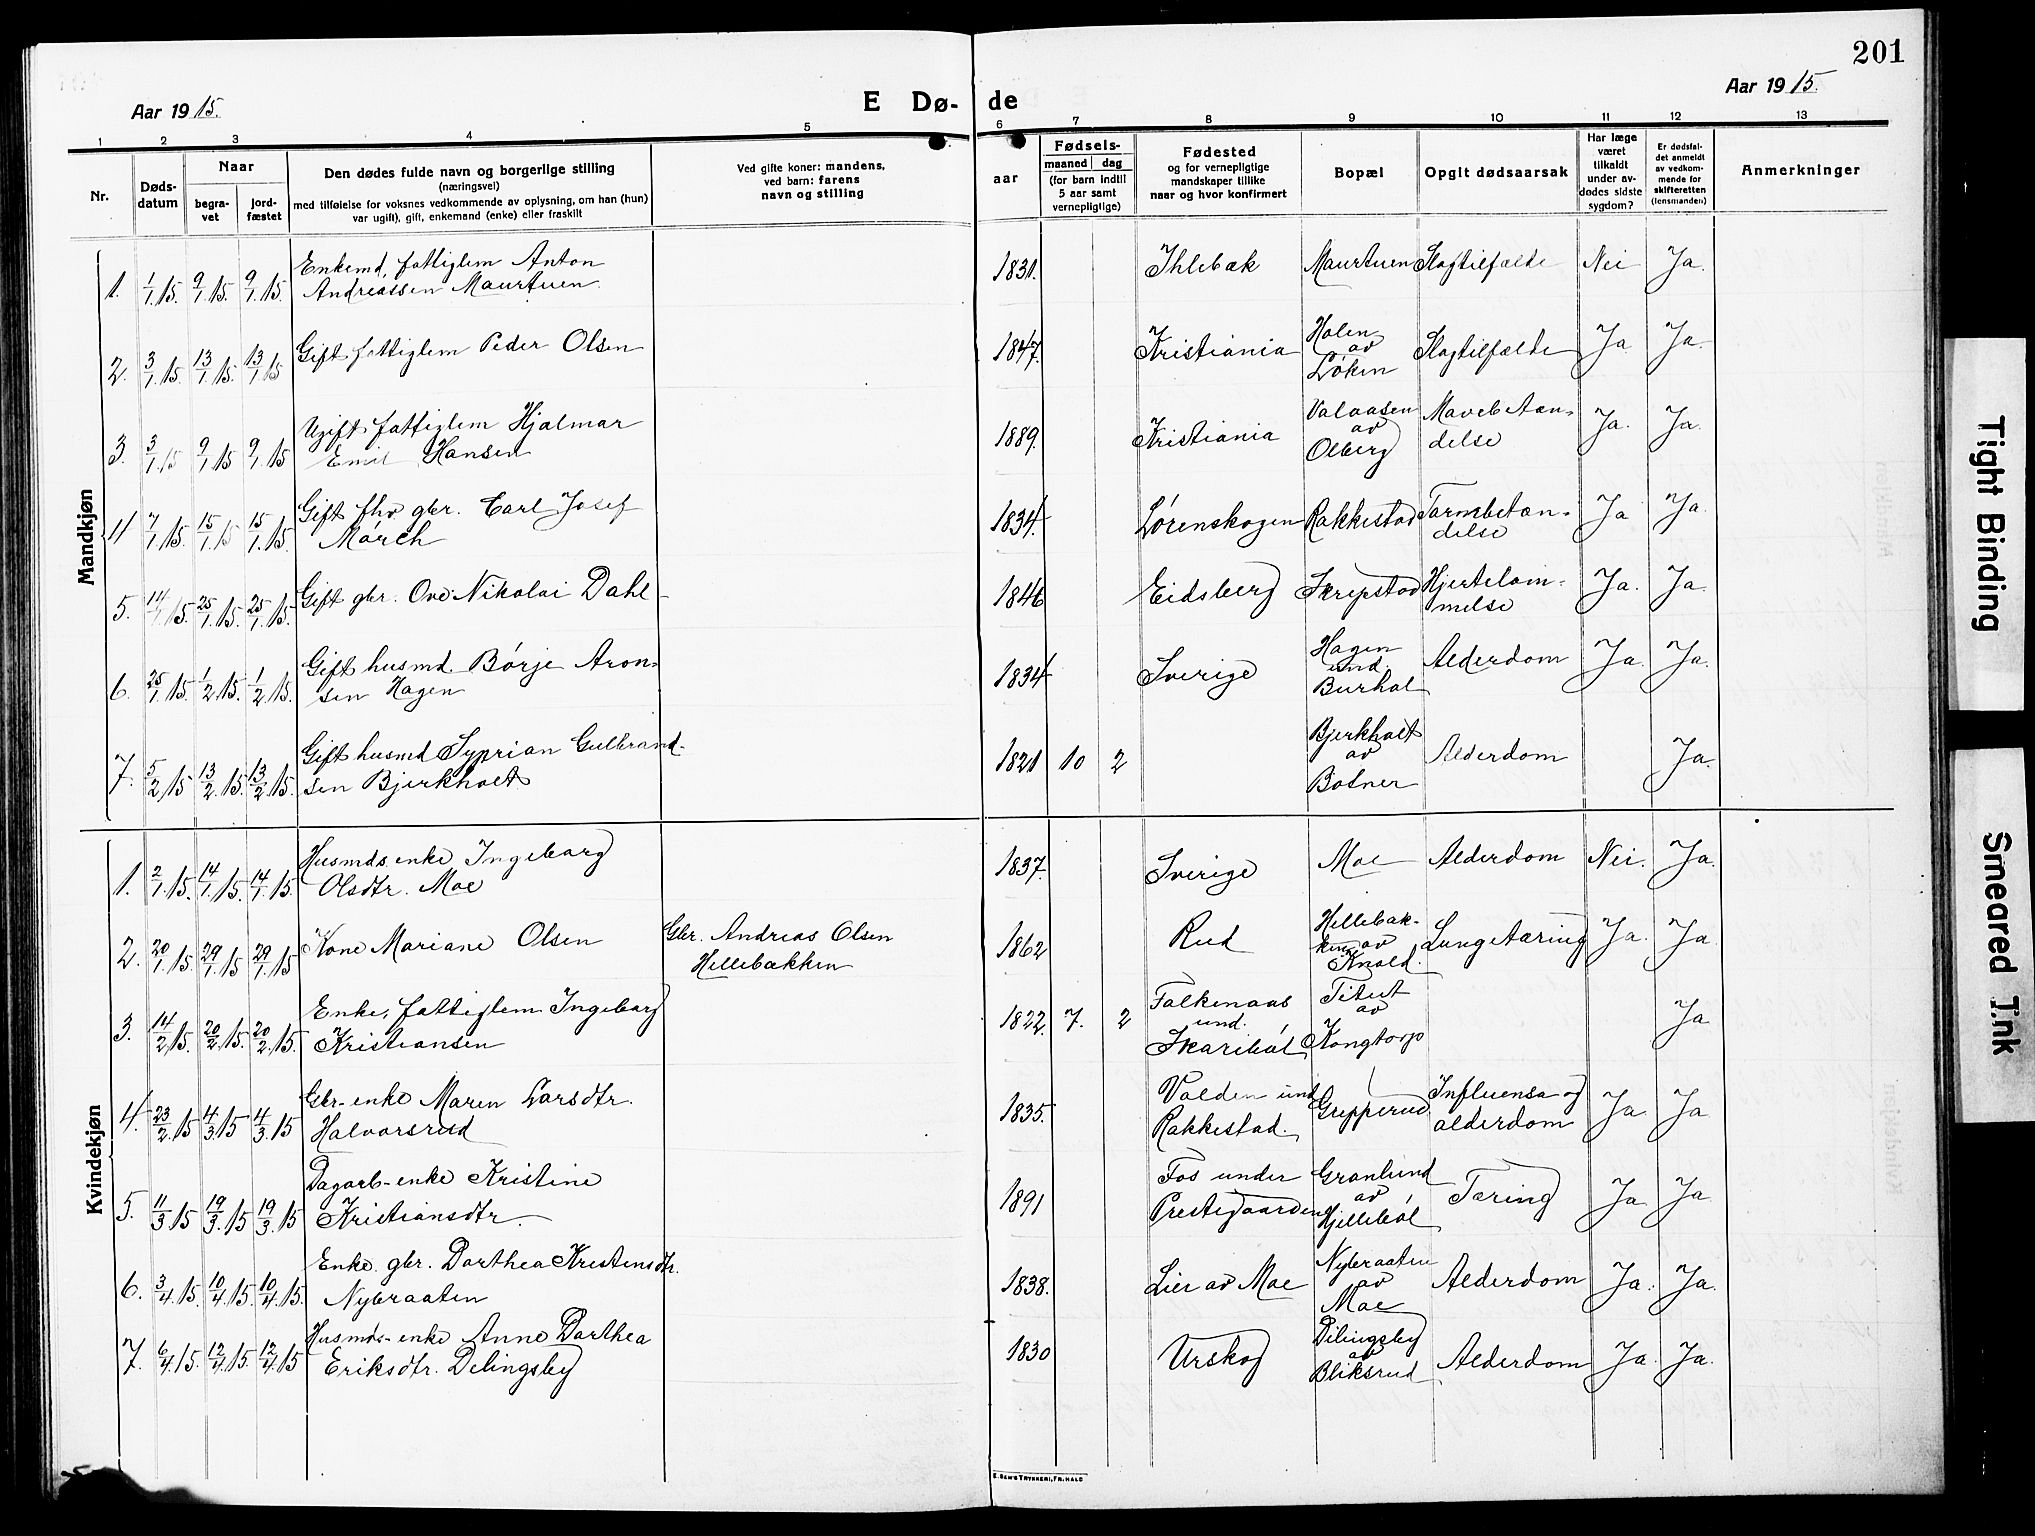 201
Aar 1915.
E Dø-
de
Aar 1915.
1 2 3 4 5 6 7 8 9 10 11 12 13
Nr.
Døds-
datum
Naar
begra-
vet
jord-
fæstet
Den dødes fulde navn og borgerlige stilling
(næringsvei)
med tilføielse for voksnes vedkommende av oplysning, om han (hun)
var ugift), gift, enkemand (enke) eller fraskilt
Ved gifte koner: mandens,
ved barn: farens
navn og stilling
aar
Fødsels-
maaned dag
(for barn indtil
5 aar samt
vernepligtige)
Fødested
og for vernepligtige
mandskaper tillike
naar og hvor konfirmert
Bopæl
Opgit dødsaarsak
Har læge
været
tilkaldt
under av-
dødes sidste
sygdom?
Er dødsfal-
det anmeldt
av vedkom-
mende for
skifteretten
(lensmanden)
Anmerkninger
Mandkjøn
1. 1/1.15. 9/1.15. 9/1.15. Enkemd, fattiglem Anton
Andreassen Maurtuen. 1831. Ihlebæk Maurtuen Slagtilfælde Nei Ja.
2. 3/1.15. 13/1.15. 13/1.15 Gift fattiglem Peder Olsen 1847. Kristiania Holen
av
Løken Slagtilfælde Ja Ja.
3. 3/1.15 9/1.15 9/1.15 Ugift fattiglem Hjalmar
Emil Hansen 1889. Kristiania Valaasen
av
Olberg Mavebetæn-
delse Ja. Ja.
4 7/1.15. 15/1.15 15/1.15. Gift fhv. gbr. Carl Josef
Mörch 1834. Lørenskogen Rakkestad Tarmbetæn-
delse Ja Ja.
5. 14/1.15. 25/1.15. 25/1.15. Gift gbr. Ove Nikolai Dahl 1846 Eidsberg Skrepstad Hjertelam-
melse Ja. Ja.
6. 25/1.15. 1/2.15. 1/2.15. Gift husmd. Börje Aron-
sen Hagen 1834 Sverige Hagen
und.
Burhol Alderdom Ja. Ja.
7. 5/2.15 13/2.15. 13/2.15. Gift husmd Syprian Gulbrand-
sen Bjerkholt 1821 10 2 Bjerkholt
av
Botner Alderdom Ja.
Kvindekjøn
1. 2/1.15. 14/1.15. 14/1.15. Husmds. enke Ingeborg
Olsdtr. Moe 1837. Sverige Moe Alderdom Nei. Ja.
2. 20/1.15 29/1.15 29/1.15 Kone Mariane Olsen Gbr. Andreas Olsen
Hellebækken 1862 Rud Hellebæk-
ken av
Knold. Lungetæring Ja. Ja.
3. 14/2.15. 20/2.15. 20/2.15. Enke, fattiglem Ingeborg
Kristiansen 1822. 7. 2 Falkenaas
und.
Skaribøl Titut
av
Kongtorp Ja
4. 23/2.15 4/3.15 4/3.15 Gbr-enke Maren Larsdtr.
Halvorsrud 1835. Volden und
Rakkestad. Grepperud Influensa og
alderdom Ja Ja
5. 11/3.15 19/3.15 19/3.15 Dagarb-enke Kristine
Kristiansdtr. 1891 Fos under
Prestegaarden Granlund
av
Hjellebøl Tæring Ja Ja
6. 3/4.15. 10/4.15. 10/4.15. Enke. gbr. Dorthea Kristensdtr.
Nybraaten 1838. Lier av Moe Nybraaten
av
Moe Alderdom Ja. Ja.
7. 6/4.15. 12/4.15. 12/4.15 Husmds-enke Anne Dorthea
Eriksdtr. Delingsby 1830 Urskog Dilingsby
av
Bliksrud Alderdom Ja. Ja.
E. SEM'S TRYKKERI, FR.HALD
Tight Binding
Smeared I.nk